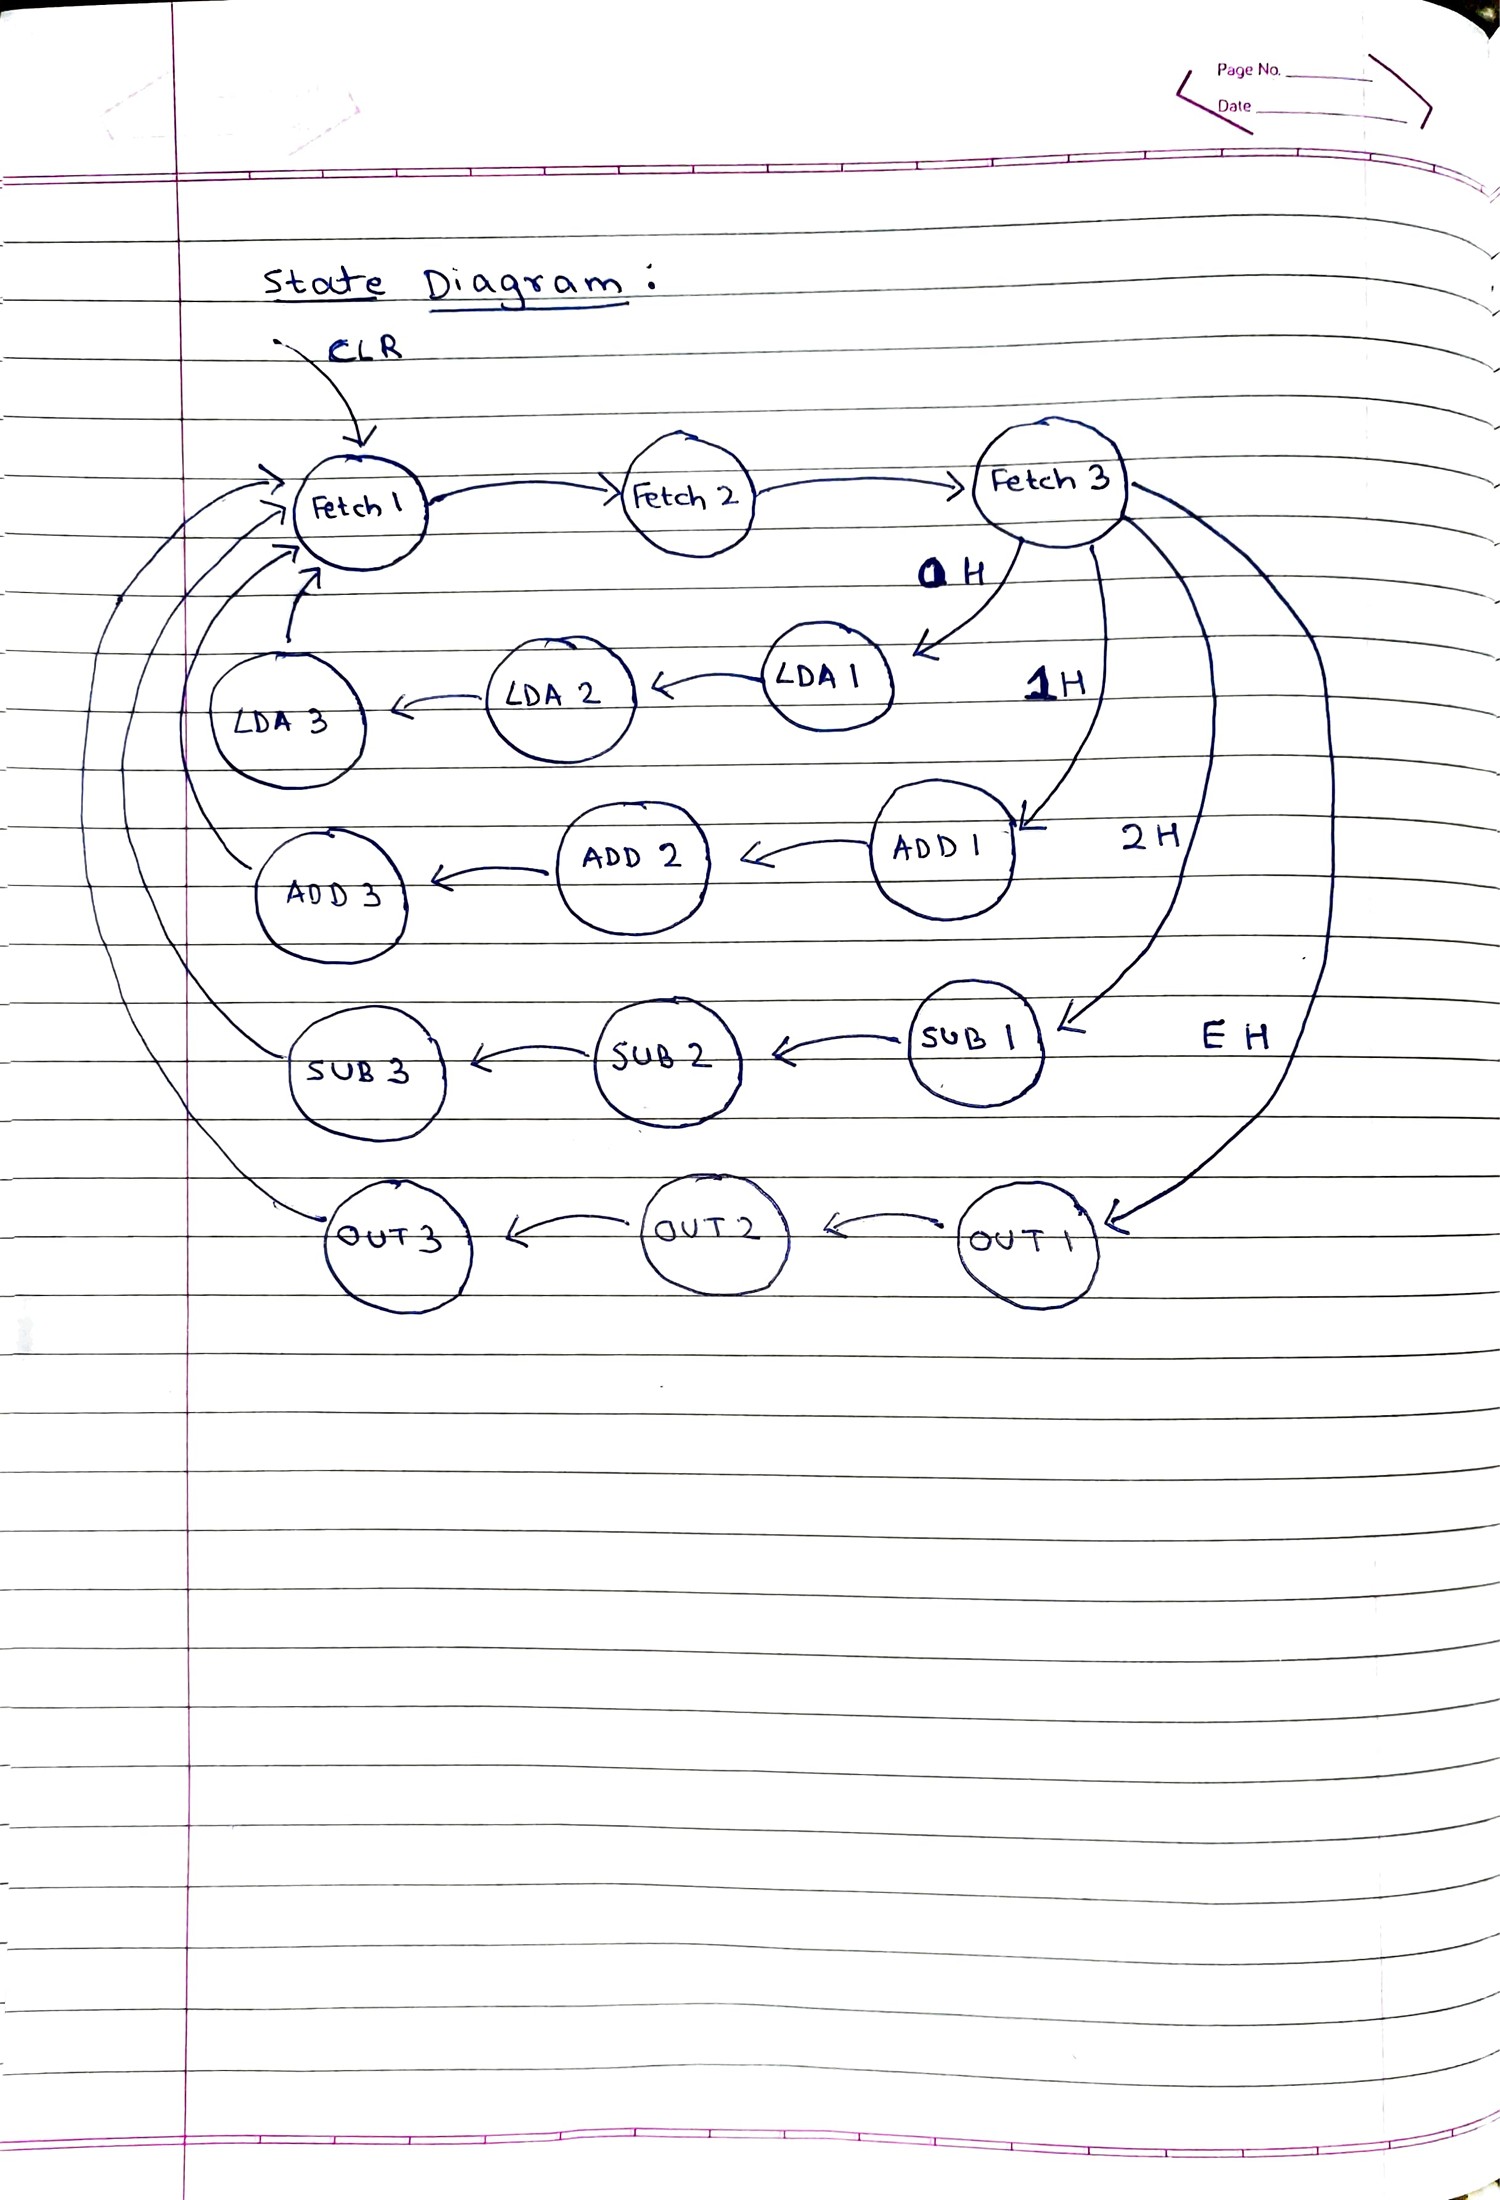 Page No.
Date
State Diagram:
CLR
Fetch 1
Fetch 2
Fetch 3
0 H
LDA 3
LDA 2
LDA 1
1H
ADD 3
ADD 2
ADD 1
2H
SUB 3
SUB 2
SUB 1
E H
OUT 3
OUT 2
OUT 1